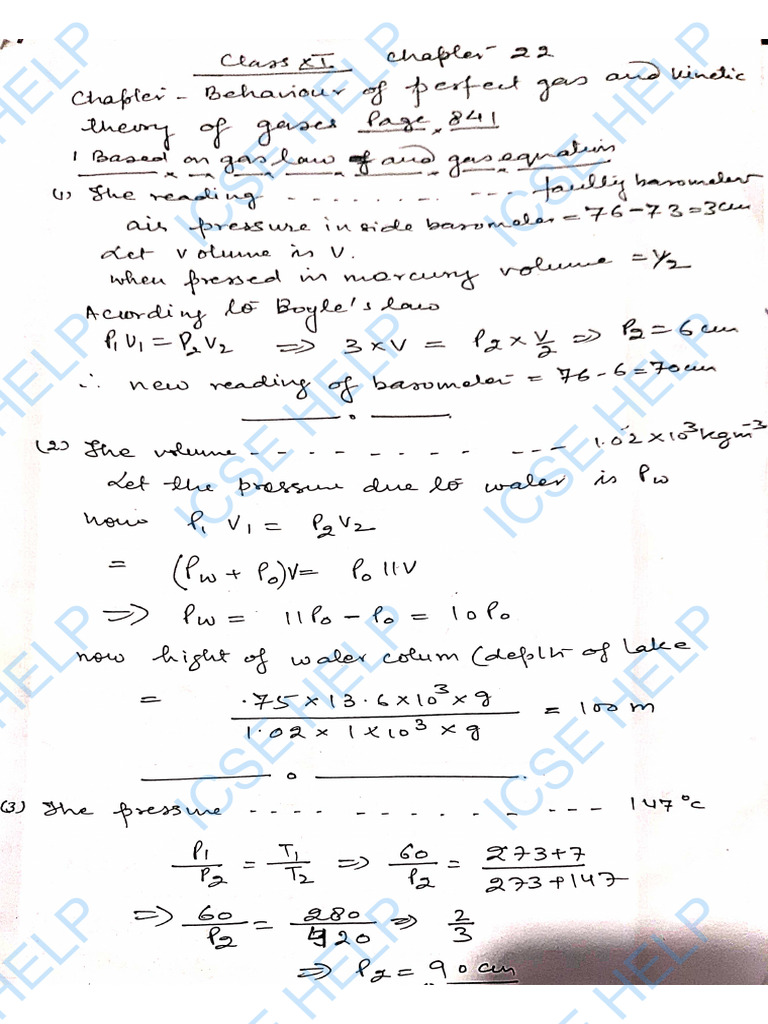 Class XI Chapter 22
Chapter - Behaviour of perfect gas and kinetic
theory of gases Page 841
1 Based on gas law of and gas equation
(1) The reading - - - - - - - - - - faulty barometer
air pressure inside barometer = 76 - 73 = 3cm
Let volume is V.
when pressed in marcury volume = V/2
Acording to Boyle's law
P₁V₁ = P₂V₂ ⇒ 3 × V = P₂ × V/2 ⇒ P₂ = 6 cm
∴ new reading of barometer = 76 - 6 = 70cm
(2) The volume - - - - - - - - - - - 1.02 × 10³ kgm⁻³
Let the pressure due to water is Pw
now P₁ V₁ = P₂V₂
= (Pw + P₀)V = P₀ 11V
⇒ Pw = 11P₀ - P₀ = 10P₀
now hight of water colum (depth of lake
= .75 × 13.6 × 10³ × g / 1.02 × 1 × 10³ × g = 100 m
(3) The pressure - - - - - - - - - - - - 147°c
P₁/P₂ = T₁/T₂ ⇒ 60/P₂ = 273+7/273+147
⇒ 60/P₂ = 280/420 ⇒ 2/3
⇒ P₂ = 90 cm
ICSE HELP
ICSE HELP
ICSE HELP
ICSE HELP
ICSE HELP
ICSE HELP
ICSE HELP
ICSE HELP
ICSE HELP
ICSE HELP
ICSE HELP
ICSE HELP